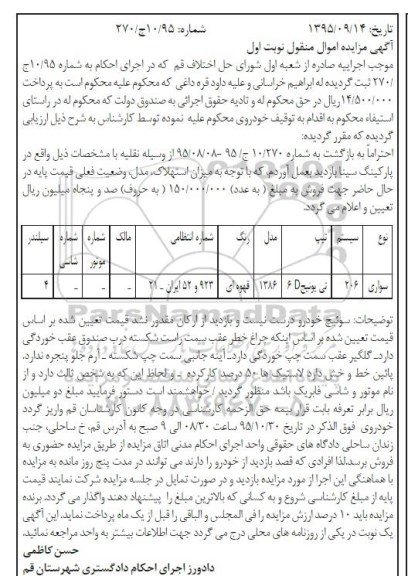 تاریخ: ۱۳۹۵/۰۹/۱۴ شماره: ۱۰/۹۵ج/۲۷۰
آگهی مزایده اموال منقول نوبت اول
موجب اجراییه صادره از شعبه اول شورای حل اختلاف قم که در اجرای احکام به شماره ۱۰/۹۵ج
/۲۷۰ ثبت گردیده له ابراهیم خراسانی و علیه داود قره داغی که محکوم علیه محکوم است به پرداخت
۱۴/۵۰۰/۰۰۰ ریال در حق محکوم له و تادیه حقوق اجرائی به صندوق دولت که محکوم له در راستای
استیفاء محکوم به اقدام به توقیف خودروی محکوم علیه نموده توسط کارشناس به شرح ذیل ارزیابی
گردیده که مقرر گردیده:
احتراماً به بازگشت به شماره ۱۰/۲۷۰ ج/ ۹۵ -۹۵/۰۸/۰۸ از وسیله نقلیه با مشخصات ذیل واقع در
پارکینگ سینا بازدید بعمل آوردم، که با توجه به میزان استهلاک، مدل، وضعیت فعلی قیمت پایه در
حال حاضر جهت فروش به مبلغ ( به عدد) ۱۵۰/۰۰۰/۰۰۰ ( به حروف) صد و پنجاه میلیون ریال
تعیین و اعلام می گردد.
نوع سیستم تیپ مدل رنگ شماره انتظامی مالک شماره موتور شماره شاسی سیلندر
سواری ۲۰۶ تی یونیج6D ۱۳۸۶ قهوه ای ۹۲۳ و ۵۲ ایران - ۲۱ - - - ۴
توضیحات: سوئیچ خودرو درست نیست و بازدید از ارکان مقدور نشد قیمت تعیین شده بر اساس
قیمت تعیین شده بر اساس اینکه چراغ خطر عقب سمت راست شکسته درب صندوق عقب خوردگی
دارد، گلگیر عقب سمت چپ خوردگی دارد، آینه جانبی سمت چپ شکسته - آرم جلو پنجره ندارد،
پائین خط و خش دارد لاستیک ها ۵۰ درصد کارکرده - و لحاظ این که به شخص ثالث دارد و از
نام موتور و شاسی فابریک باشد منظور گردید / خواهشمند است دستور فرمایید مبلغ دو میلیون
ریال برابر تعرفه بابت قرار بیمه حق الزحمه کارشناسی در وجه کانون کارشناسان قم واریز گردد
خودروی فوق الذکر در تاریخ ۹۵/۱۰/۳۰ ساعت ۰۸/۳۰ الی ۹ صبح به آدرس قم، خ ساحلی، جنب
زندان ساحلی دادگاه های حقوقی واحد اجرای احکام مدنی اتاق مزایده از طریق مزایده حضوری به
فروش برسد،لذا افرادی که قصد بازدید از خودرو را دارند می توانند در مدت پنج روز مانده به مزایده
با هماهنگی این اجرا از مورد مزایده بازدید و در صورت تمایل در جلسه مزایده شرکت نمایند قیمت
پایه از مبلغ کارشناسی شروع و به کسانی که بالاترین مبلغ را پیشنهاد دهند واگذار می گردد. برنده
مزایده باید ۱۰ درصد ارزش مزایده را فی المجلس و الباقی را قبل از یک ماه پرداخت نماید. این آگهی
یک نوبت در یکی از روزنامه های محلی درج می گردد جهت اطلاعات بیشتر به واحد مراجعه نمائید.
حسن کاظمی
دادورز اجرای احکام دادگستری شهرستان قم